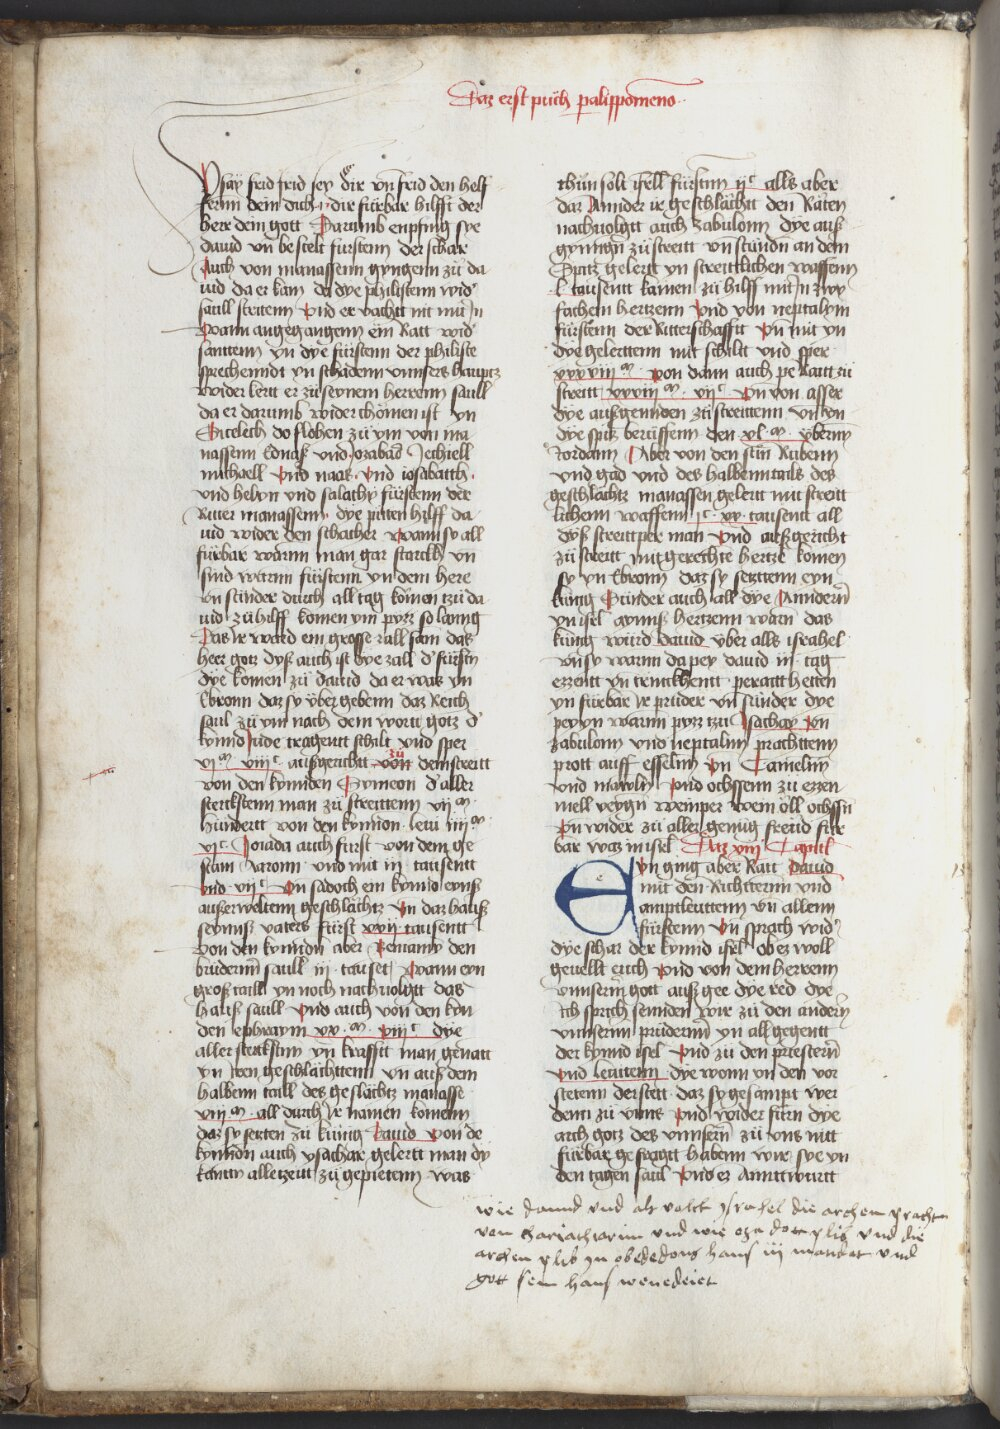 Daz erst puch palippomeno
Ysay frid frid sey dir vn frid den helf
fernn dein dich dir furbar hilfft der
herr dein gott Darumb enpfing sye
dauid vn bestelt furstenn der schar
Auch von manassenn gyngenn zu da
uid da er kam da dye philistenn wid
saull strittenn Vnd er vachtt nit mit in
Wann angegangenn ein Ratt wid
santtenn yn dye furstenn der philiste
sprechenndt yn schadenn vnnsers hauptz
wider kertt er zu seynem herrenn saull
da er darumb wider chomen ist yn
Sicelech do flohen zu ym von ma
nassenn Ednass vnd Jozabad Jechiell
michaell Vnd naas Vnd iosabatth
vnd helyn vnd salathy furstenn der
Ritter manassenn dye puten hilff da
uid wider den schacher Wann sy all
furbar warnn man gar starckh vn
sind warnn furstenn yn dem here
vn sunder durch all tag komen tzu da
uid zu hilff komen ym pysz so lanng
Das ir ward ein grosse zall sam das
heer gotz dysz auch ist dye zall d furstn
dye komen zu dauid da er was yn
Ebronn daz sy vber gebenn daz Reich
saul zu ym nach dem wortt gotz d
kynnd Jude tragentt schilt vnd sper
vj m viij c auszgerichtt von zu dem streitt
von den kynnden Symeon d aller
sterckstenn man zu streittenn vij m
hundertt von den kynnden leui iiij m
vj c Joiada auch furst von dem ge
stam Aaronn vnd mit im tausentt
vnd vij c Vn sadoch ein kynnd eynsz
auszerweltenn geschlachtz Vn daz hausz
seynnsz vaters furst xxij tausentt
Von den kynnden aber Beniamy den
brudernn saull iij tauset Wann eyn
grosz taill yn noch nach uolgtt das
hausz saull Vnd auch von den kyn
den ephraym xx m viij c dye
aller sterckstnn yn krafftt man genatt
yn iren geschlachttenn Vn ausz dem
halbenn taill des geslachtz manasse
viij m all durch ir namen komenn
daz sy setzten zu kunig Dauid Von de
kynnden auch ysachar gelertt man dy
kantn alletzeitt zu gepietenn was
thun solt isrll furstnn ij c alls aber
daz Annder ir geschlachtt den Raten
nachuolgtt auch zabulonn dye ausz
gyngn zu streitt vn stundn an dem
Spitz gelertt yn streittlichen waffenn
l tausentt kamen zu hilff mit in zwy
fachem hertzenn Vnd von neptalym
furstenn der Ritterschafftt Vn mit yn
dye gelerttenn mit schiltt vnd sper
xxxvij m von dann auch pe Raitt zu
streitt xxviij m vij c Vn von asser
dye auszgennden zu streittenn vn yn
dye spitz beruffenn den xl m vbernn
Jordann Aber von den sun Rubenn
vnd gad vnd des halbenn tails des
geschlachtz manassen gelertt mit streitt
lichenn waffenn j c xx tausentt all
dysz streittper man Vnd auszgericht
zu streitt mit gerechte hertze komen
sy yn Ebronn daz sy setzttenn eyn
kunig Sunder auch all dye Anndern
yn isrl aynnsz hertzenn warn das
kunig wurd dauid vber alls israhel
Vn sy warnn da pey dauid iij tag
ezzentt vn trinckhentt peraitt hetten
yn furbar ir pruder vn sunder dye
pey yn warnn pysz tzu Isachar Vn
zabulonn vnd neptalim prachttenn
prott auff esselnn Vn Camelnn
vnd mawln Vnd ochssenn zu ezzen
mell veygn weinper wein oll ochssn
Vn wider zu aller genug freud fur
bar waz in isrl Daz xiij Capitl
En ging aber Ratt Dauid
mit den Richtternn vnd
amptleuttenn vn allenn
furstenn Vn sprach wid
dye schar der kynnd isrl ob ez woll
geuellt euch Vnd von dem herrenn
vnnserm gott ausz gee dye red dye
ich sprich sennden wir zu den andern
vnnsernn prudernn yn all gegentt
der kynnd isrl Vnd zu den priestern
Vnd leuittenn dye wonn yn den vor
stetenn der stett daz sy gesampt wer
denn zu vnns Vnd wider furn dye
arch gotz des vnnsern zu vns nitt
furbar gefragtt habenn wir sye yn
den tagen saul Vnd ez Anntwurtt
wie dauid vnd als volck Jsrahel die archen prachtn
von chariathiarim vnd wie oza dott plib vnd die
archen plib in obededons haus iij manbat vnd
gott sein haus benedeiet